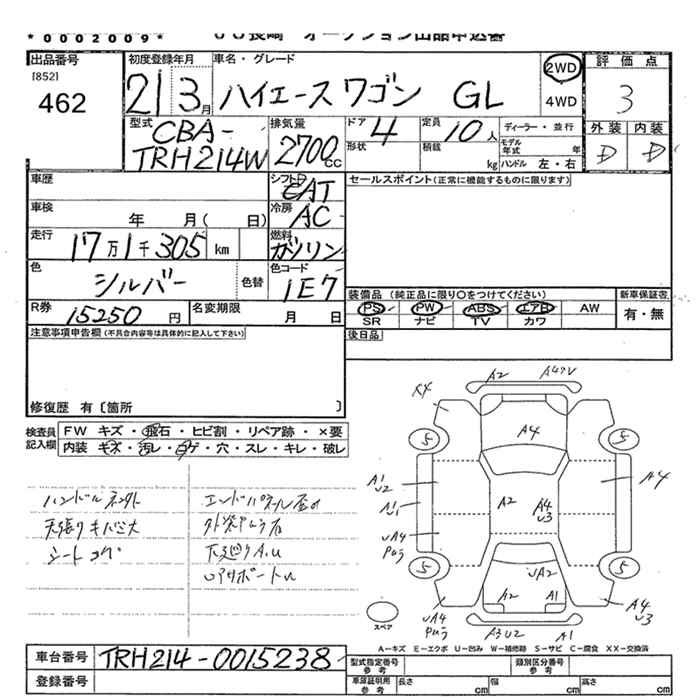 *0002009*
JU長崎 オークション出品申込書
出品番号
[852]
462
初度登録年月
21 3月
車名・グレード
ハイエース ワゴン GL
2WD
4WD
評価点
3
外装 内装
D D
型式
CBA-
TRH214W
排気量
2700cc
ドア
4
形状
定員
10人
積載
kg
ディーラー・並行
モデル年式 年
ハンドル 左・右
車歴
シフト
CAT
セールスポイント(正常に機能するものに限ります)
車検
年 月( 日)
冷房
AC
走行
17万1千305 km
燃料
ガソリン
色
シルバー
色替
色コード
1E7
装備品 (純正品に限り〇をつけてください)
新車保証書
PS PW ABS エアB AW
SR ナビ TV カワ
有・無
R券
15250円
名変期限
月 日
注意事項申告欄(不具合内容等は具体的に記入して下さい)
後日品
修復歴 有〔箇所 〕
検査員
記入欄
FW キズ・飛石・ヒビ割・リペア跡・×要
内装 キズ・汚レ・コゲ・穴・スレ・キレ・破レ
ハンドル
天張りキバミ大
シートコゲ
エンドパネル
下廻りA.U
A2
A4
5 5
A1
U2
A1
U1
A2
A4
U3
A4
UA4
5 5
UA2
A2 A1
UA4
A4
U3
スペア
A3U2 A1
A-キズ E-エクボ U-凹み W-補修跡 S-サビ C-腐食 XX-交換済
車台番号
TRH214-0015238
登録番号
型式指定番号
参考
類別区分番号
参考
車庫証明用
参考
長さ cm
幅 cm
高さ cm